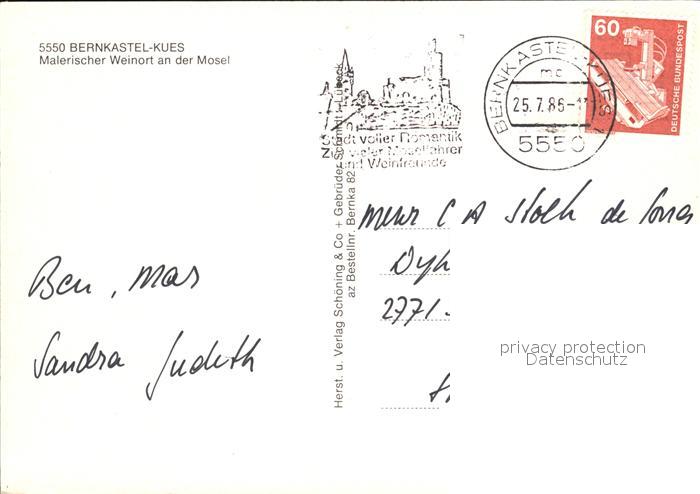 5550 BERNKASTEL-KUES
Malerischer Weinort an der Mosel
Ben, Mar
Sandra Judith
Herst. u. Verlag Schöning & Co + Gebrüder Schmidt - Lübeck
az Bestellnr. Bernka 82
Stadt voller Romantik
Ziel vieler Moselfahrer
und Weinfreunde
BERNKASTEL-KUES 1
mc
25.7.86-1
5550
60
DEUTSCHE BUNDESPOST
C A Stolk de
Dyk
2771
privacy protection
Datenschutz